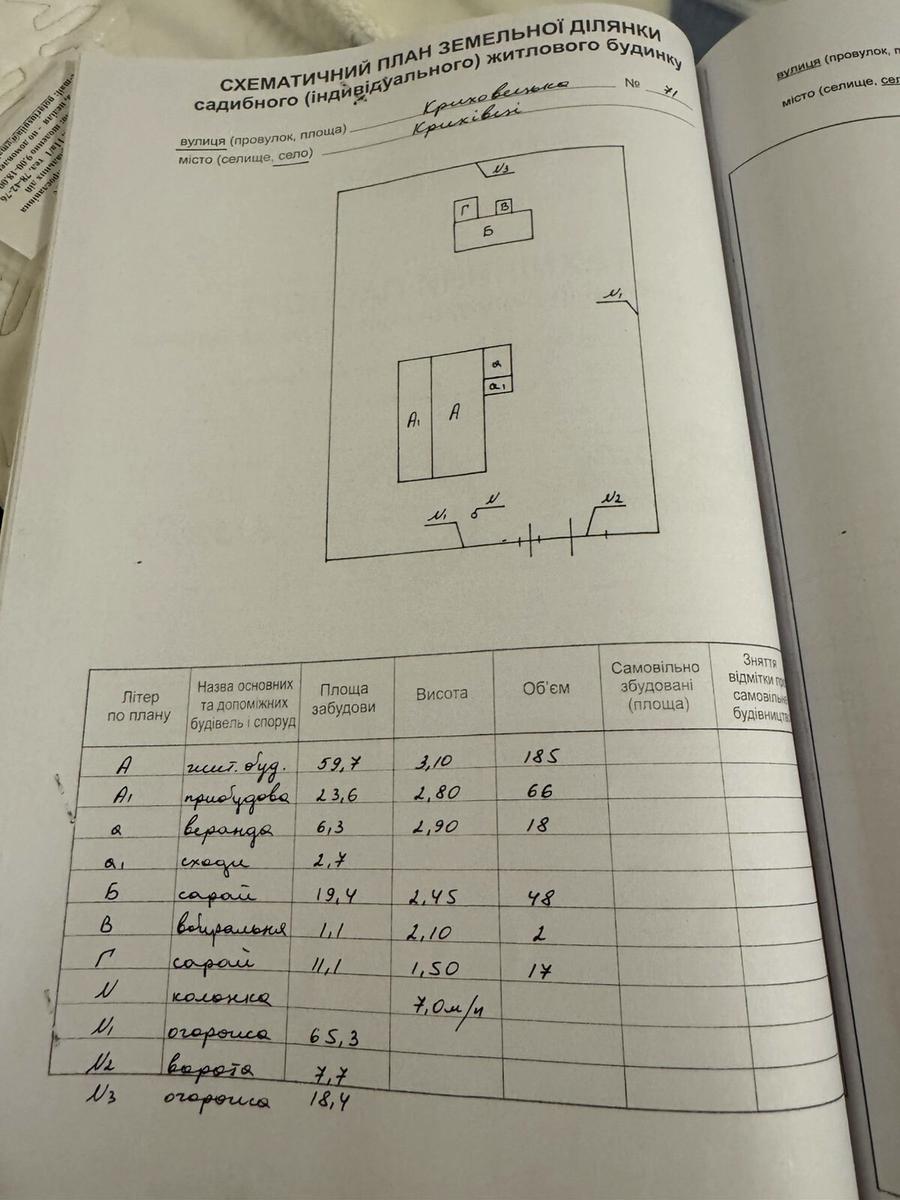 СХЕМАТИЧНИЙ ПЛАН ЗЕМЕЛЬНОЇ ДІЛЯНКИ
садибного (індивідуального) житлового будинку
вулиця (провулок, площа) Криховецька № 71
місто (селище, село) Крихівці
N3
Г В
Б
N1
а
а1
А1 А
N1 N N2
Літер по плану Назва основних та допоміжних будівель і споруд Площа забудови Висота Об'єм Самовільно збудовані (площа) Зняття відмітки
А жит. буд. 59,7 3,10 185
А1 прибудова 23,6 2,80 66
а веранда 6,3 2,90 18
а1 сходи 2,7
Б сарай 19,4 2,45 48
В вбиральня 1,1 2,10 2
Г сарай 11,1 1,50 17
N колонка 7,0 м/п
N1 огорожа 65,3
N2 ворота 7,7
N3 огорожа 18,4
вулиця (провулок,
місто (селище,